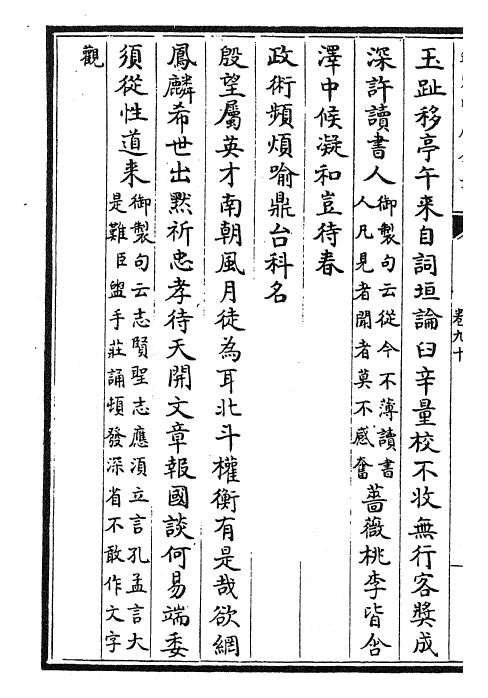 卷九十
玉趾移亭午来自詞垣論臼辛量校不收無行客奬成
深許讀書人御製句云從今不薄讀書人凡見者聞者莫不感奮薔薇桃李皆含
澤中候凝和豈待春
政術頻煩喻鼎台科名
殷望屬英才南朝風月徒為耳北斗權衡有是哉欲網
鳳麟希世出黙祈忠孝待天開文章報國談何易端委
須從性道来御製句云志賢聖志應湏立言孔孟言大是難臣盥手莊誦頓發深省不敢作文字
觀